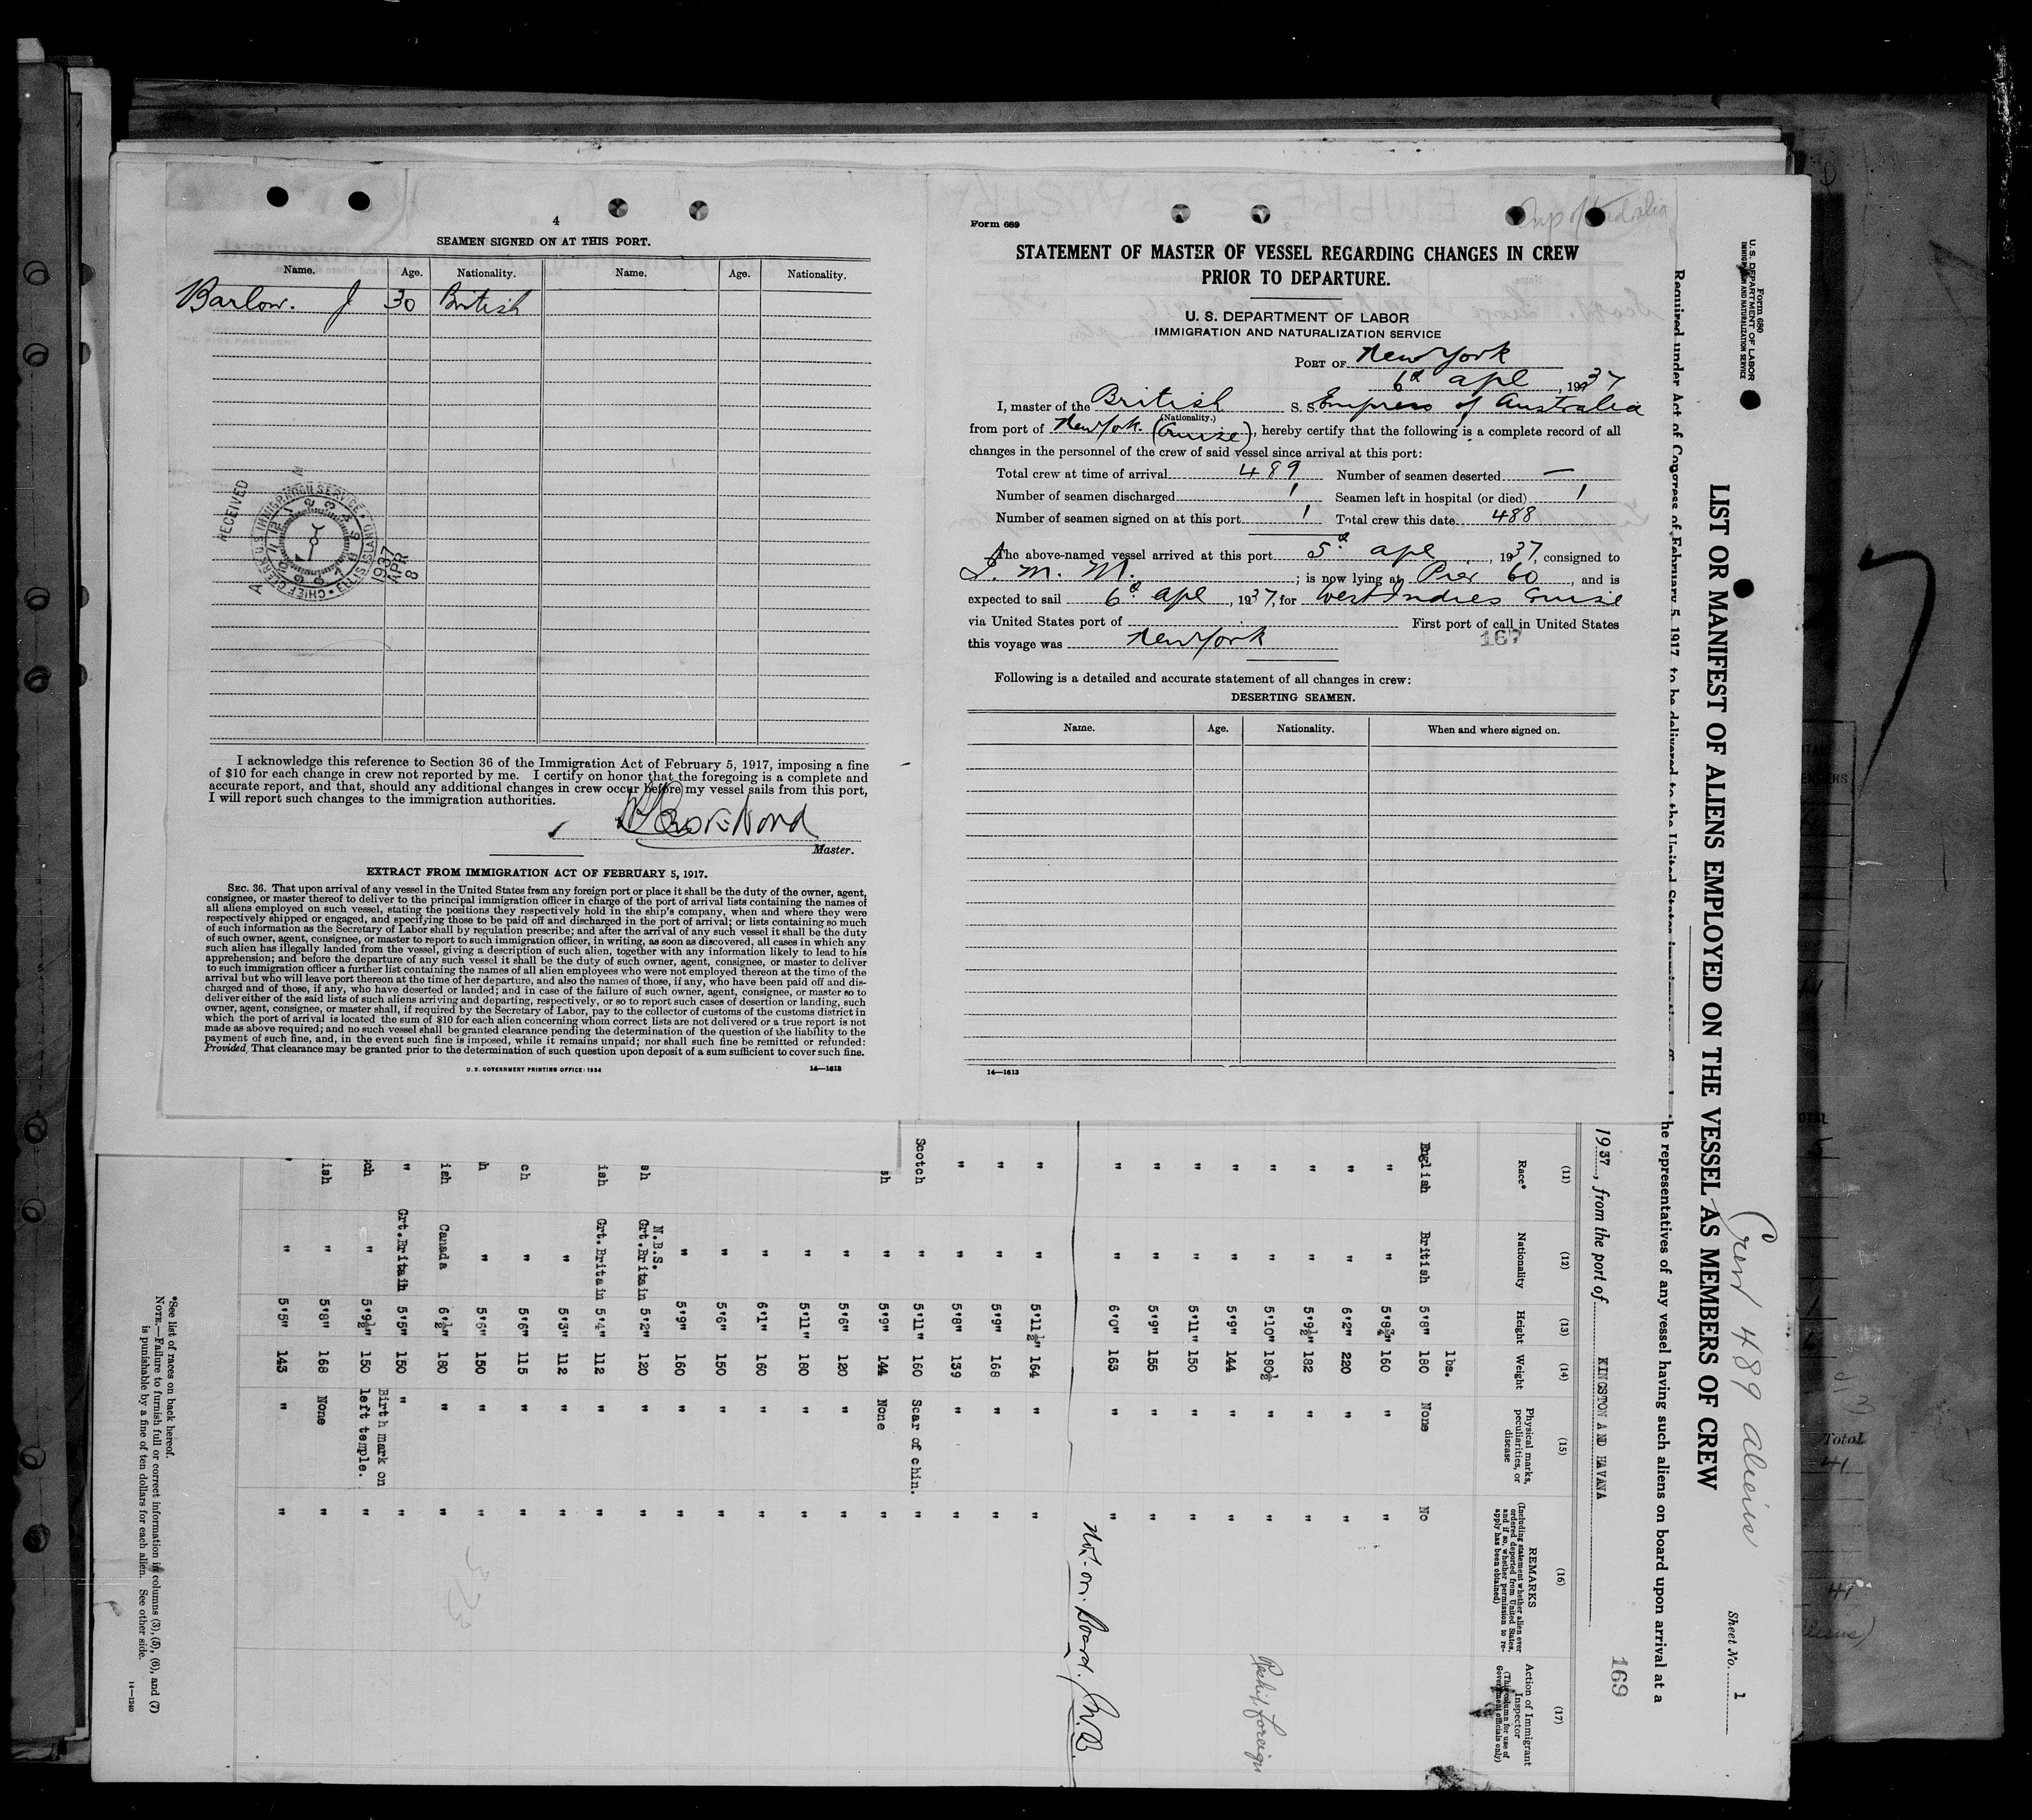 4
SEAMEN SIGNED ON AT THIS PORT.
Name. Age. Nationality. Name. Age. Nationality.
Barlow. J 30 British
RECEIVED
CHIEF CLERK U.S. IMMIGRATION SERVICE ELLIS ISLAND
1937 APR 8
I acknowledge this reference to Section 36 of the Immigration Act of February 5, 1917, imposing a fine
of $10 for each change in crew not reported by me. I certify on honor that the foregoing is a complete and
accurate report, and that, should any additional changes in crew occur before my vessel sails from this port,
I will report such changes to the immigration authorities.
Master.
EXTRACT FROM IMMIGRATION ACT OF FEBRUARY 5, 1917.
SEC. 36. That upon arrival of any vessel in the United States from any foreign port or place it shall be the duty of the owner, agent,
consignee, or master thereof to deliver to the principal immigration officer in charge of the port of arrival lists containing the names of
all aliens employed on such vessel, stating the positions they respectively hold in the ship's company, when and where they were
respectively shipped or engaged, and specifying those to be paid off and discharged in the port of arrival; or lists containing so much
of such information as the Secretary of Labor shall by regulation prescribe; and after the arrival of any such vessel it shall be the duty
of such owner, agent, consignee, or master to report to such immigration officer, in writing, as soon as discovered, all cases in which any
such alien has illegally landed from the vessel, giving a description of such alien, together with any information likely to lead to his
apprehension; and before the departure of any such vessel it shall be the duty of such owner, agent, consignee, or master to deliver
to such immigration officer a further list containing the names of all alien employees who were not employed thereon at the time of the
arrival but who will leave port thereon at the time of her departure, and also the names of those, if any, who have been paid off and dis-
charged and of those, if any, who have deserted or landed; and in case of the failure of such owner, agent, consignee, or master so to
deliver either of the said lists of such aliens arriving and departing, respectively, or so to report such cases of desertion or landing, such
owner, agent, consignee, or master shall, if required by the Secretary of Labor, pay to the collector of customs of the customs district in
which the port of arrival is located the sum of $10 for each alien concerning whom correct lists are not delivered or a true report is not
made as above required; and no such vessel shall be granted clearance pending the determination of the question of the liability to the
payment of such fine, and, in the event such fine is imposed, while it remains unpaid; nor shall such fine be remitted or refunded:
Provided, That clearance may be granted prior to the determination of such question upon deposit of a sum sufficient to cover such fine.
U. S. GOVERNMENT PRINTING OFFICE: 1934 14—1613
Form 689
Emp of Australia
STATEMENT OF MASTER OF VESSEL REGARDING CHANGES IN CREW
PRIOR TO DEPARTURE.
U. S. DEPARTMENT OF LABOR
IMMIGRATION AND NATURALIZATION SERVICE
PORT OF New York
6th Apl, 1937
I, master of the British S. S. Empress of Australia
(Nationality.)
from port of New York. (Cruise), hereby certify that the following is a complete record of all
changes in the personnel of the crew of said vessel since arrival at this port:
Total crew at time of arrival 489 Number of seamen deserted —
Number of seamen discharged 1 Seamen left in hospital (or died) 1
Number of seamen signed on at this port 1 Total crew this date 488
The above-named vessel arrived at this port 5th Apl, 1937, consigned to
I. M. M. ; is now lying at Pier 60, and is
expected to sail 6th Apl, 1937, for West Indies Cruise
via United States port of First port of call in United States
this voyage was New York
167
Following is a detailed and accurate statement of all changes in crew:
DESERTING SEAMEN.
Name. Age. Nationality. When and where signed on.
14—1613
Form 680
U. S. DEPARTMENT OF LABOR
IMMIGRATION AND NATURALIZATION SERVICE
Crew 489 aliens
Sheet No. 1
LIST OR MANIFEST OF ALIENS EMPLOYED ON THE VESSEL AS MEMBERS OF CREW
Required under Act of Congress of February 5, 1917, to be delivered to the United States he representatives of any vessel having such aliens on board upon arrival at a
1937, from the port of KINGSTON AND HAVANA
169
(11) (12) (13) (14) (15) (16) (17)
Race* Nationality Height Weight Physical marks, peculiarities, or disease
REMARKS (Including statement whether alien ever ordered deported from United States, and if so, whether permission to re-apply has been obtained)
Action of Immigrant Inspector (This column for use of Government officials only)
lbs.
English British 5'8" 180 None No
" " 5'8¾" 160 " "
" " 6'2" 220 " "
" " 5'9½" 182 " "
" " 5'10" 180½ " " Reship foreign
" " 5'9" 144 " "
" " 5'11" 150 " "
" " 5'9" 155 " "
" " 6'0" 163 " "
Not on Board. J.W.B.
" " 5'11½" 164 " "
" " 5'9" 168 " "
" " 5'8" 139 " "
Scotch " 5'11" 160 Scar of chin. "
sh " 5'9" 144 None "
" 5'6" 120 " "
" 5'11" 180 " "
" 6'1" 160 " "
" 5'6" 150 " "
" 5'9" 160 " "
N.B.S.
sh Grt.Britain 5'2" 120 " "
ish Grt.Britain 5'4" 112 " "
" 5'3" 112 " "
ch " 5'6" 115 " "
h " 5'6" 150 " "
ish Canada 6'½" 180 " "
" Grt.Britain 5'5" 150 " "
ch " 5'9½" 150 Birth mark on left temple. "
ish " 5'8" 168 None "
" " 5'5" 143 " "
*See list of races on back hereof.
NOTE.—Failure to furnish full or correct information in columns (3), (5), (6), and (7)
is punishable by a fine of ten dollars for each alien. See other side.
14—1240
Total
41
41